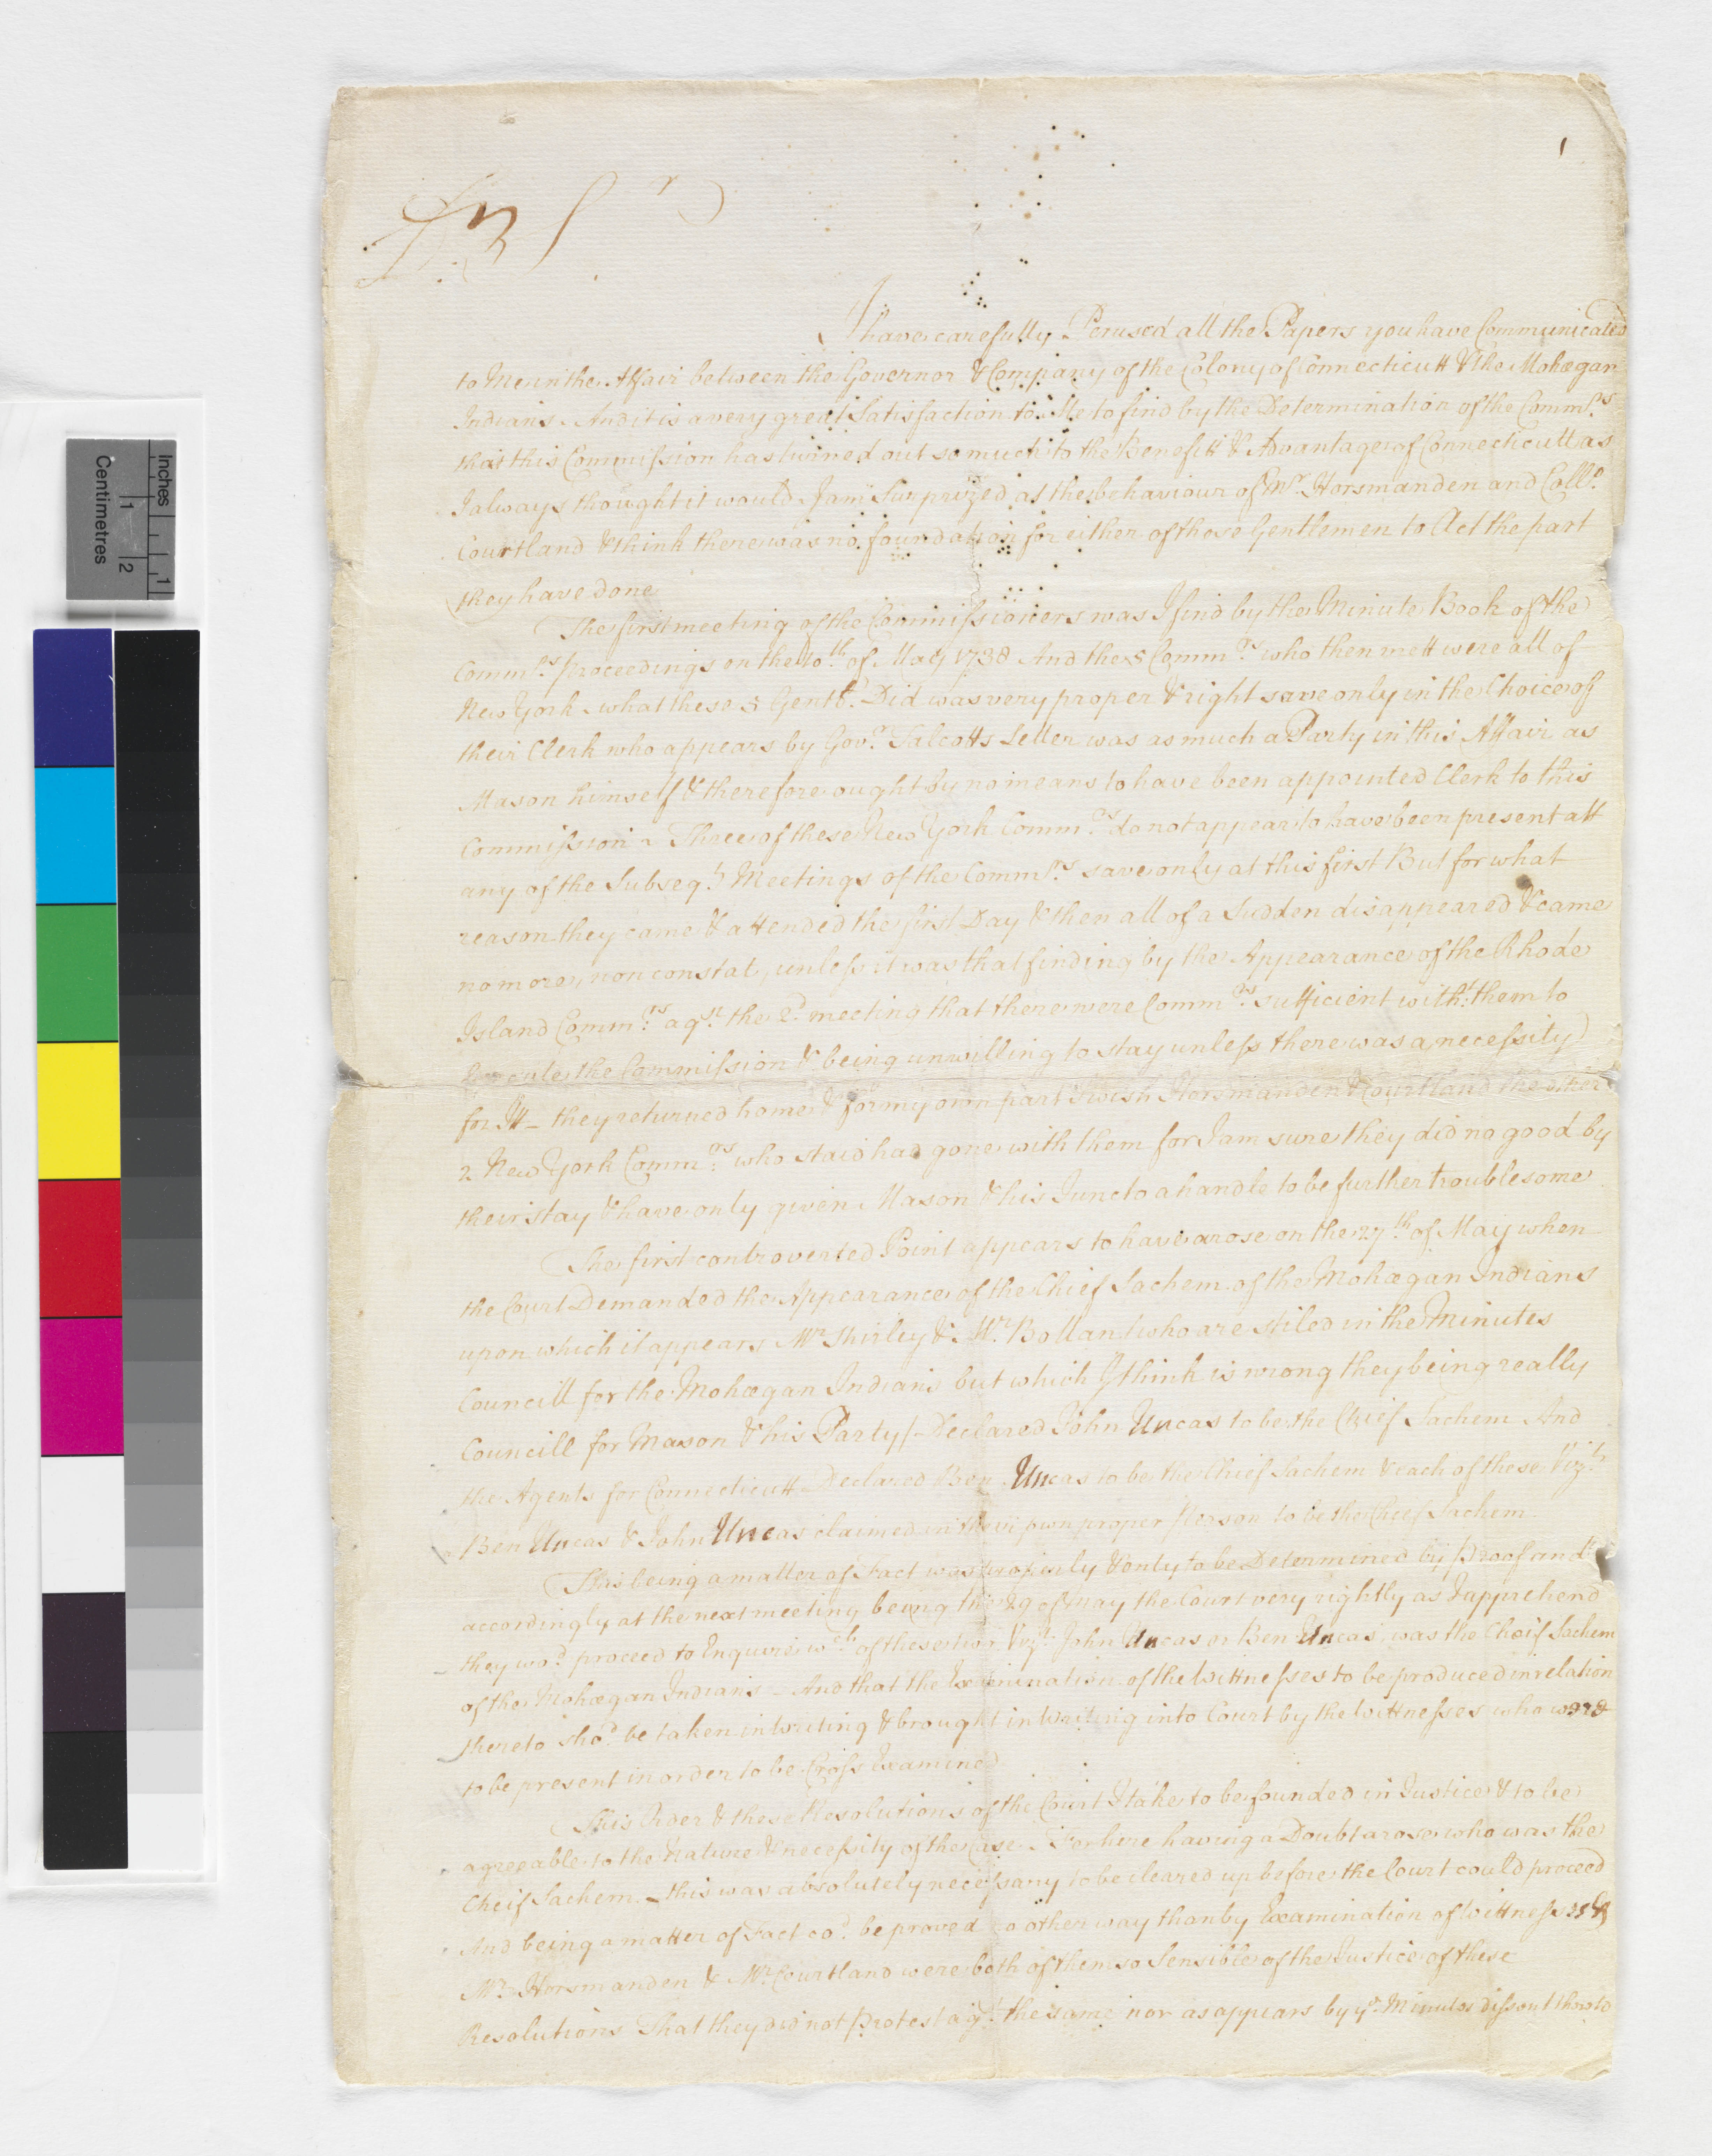 1
Sr
I have carefully Perused all the Papers you have Communicated
to Me in the Affair between the Governor & Company of the Colony of Connecticutt & the Mohegan
Indians. And it is a very great Satisfaction to Me to find by the Determination of the Commrs
that this Commission has turned out so much to the Benefitt & Advantage of Connecticutt as
I always thought it would. I am Surprized at the behaviour of Mr. Horsmanden and Collo.
Courtland & think there was no foundation for either of those Gentlemen to Act the part
they have done
The first meeting of the Commissioners was I find by the Minute Book of the
Commrs proceedings on the 10th of May 1738 And the 5 Commrs who then mett were all of
New York. what these 5 Gentn. Did was very proper & right save only in the Choice of
their Clerk who appears by Govr. Talcotts Letter was as much a Party in this Affair as
Mason himself & therefore ought by no means to have been appointed Clerk to this
Commission. Three of these New York Commrs do not appear to have been present att
any of the Subseqt. Meetings of the Commrs save only at this first But for what
reason they came & attended the first Day & then all of a Sudden disappeared & came
no more, non constat, unless it was that finding by the Appearance of the Rhode
Island Commrs. agst. the 2d. meeting that there were Commrs sufficient witht: them to
Execute the Commission & being unwilling to stay unless there was a necessity
for It - they returned home & for my own part I wish Horsmanden & Courtland the other
2 New York Commrs who staid had gone with them for I am sure they did no good by
their stay & have only given Mason & his Juncto a handle to be further troublesome
The first controverted Point appears to have arose on the 27th of May when
the Court Demanded the Appearance of the Chief Sachem of the Mohegan Indians
upon which it appears Mr. Shirley & Mr. Bollan (who are stiled in the Minutes
Councill for the Mohegan Indians but which I think is wrong they being really
Councill for Mason & his Party) - Declared John Uncas to be the Chief Sachem And
the Agents for Connecticutt Declared Ben Uncas to be the Chief Sachem & each of these Vizt.
Ben Uncas & John Uncas claimed in their own proper Person to be the Chief Sachem
This being a matter of Fact was properly & only to be Determined by proof and
accordingly at the next meeting being the 29 of May the Court very rightly as I apprehend
they wod. proceed to Enquire wch of these two Vizt: John Uncas or Ben Uncas was the Cheif Sachem
of the Mohegan Indians - And that the Examination of the Wittnesses to be produced in relation
thereto shod. be taken in Writing & brought in Writing into Court by the Wittnesses who were
to be present in order to be Cross Examined
This Order & these Resolutions of the Court I take to be founded in Justice & to be
agreeable to the Nature & necessity of the Case. For here having a Doubt arose who was the
Cheif Sachem - this was absolutely necessary to be cleared up before the Court could proceed
And being a matter of Fact cod. be proved no other way than by Examination of Wittnesses &
Mr. Horsmanden & Mr. Courtland were both of them so Sensible of the Justice of these
Resolutions That they did not protest agt. the same nor as appears by ye. Minutes dissent thereto